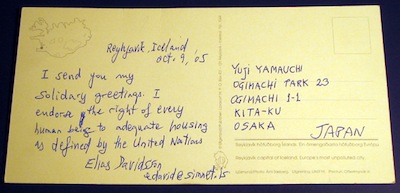 Reykjavik, Iceland
Oct. 9, '05
I send you my
Solidary greetings. I
endorse the right of every
human being to adequate housing
as defined by the United Nations
Elias Davidsson
edavid@simnet.is
YUJI YAMAUCHI
OGIMACHI PARK 23
OGIMACHI 1-1
KITA-KU
OSAKA
JAPAN
Reykjavík höfuðborg Íslands.
Reykjavík capital of Iceland.